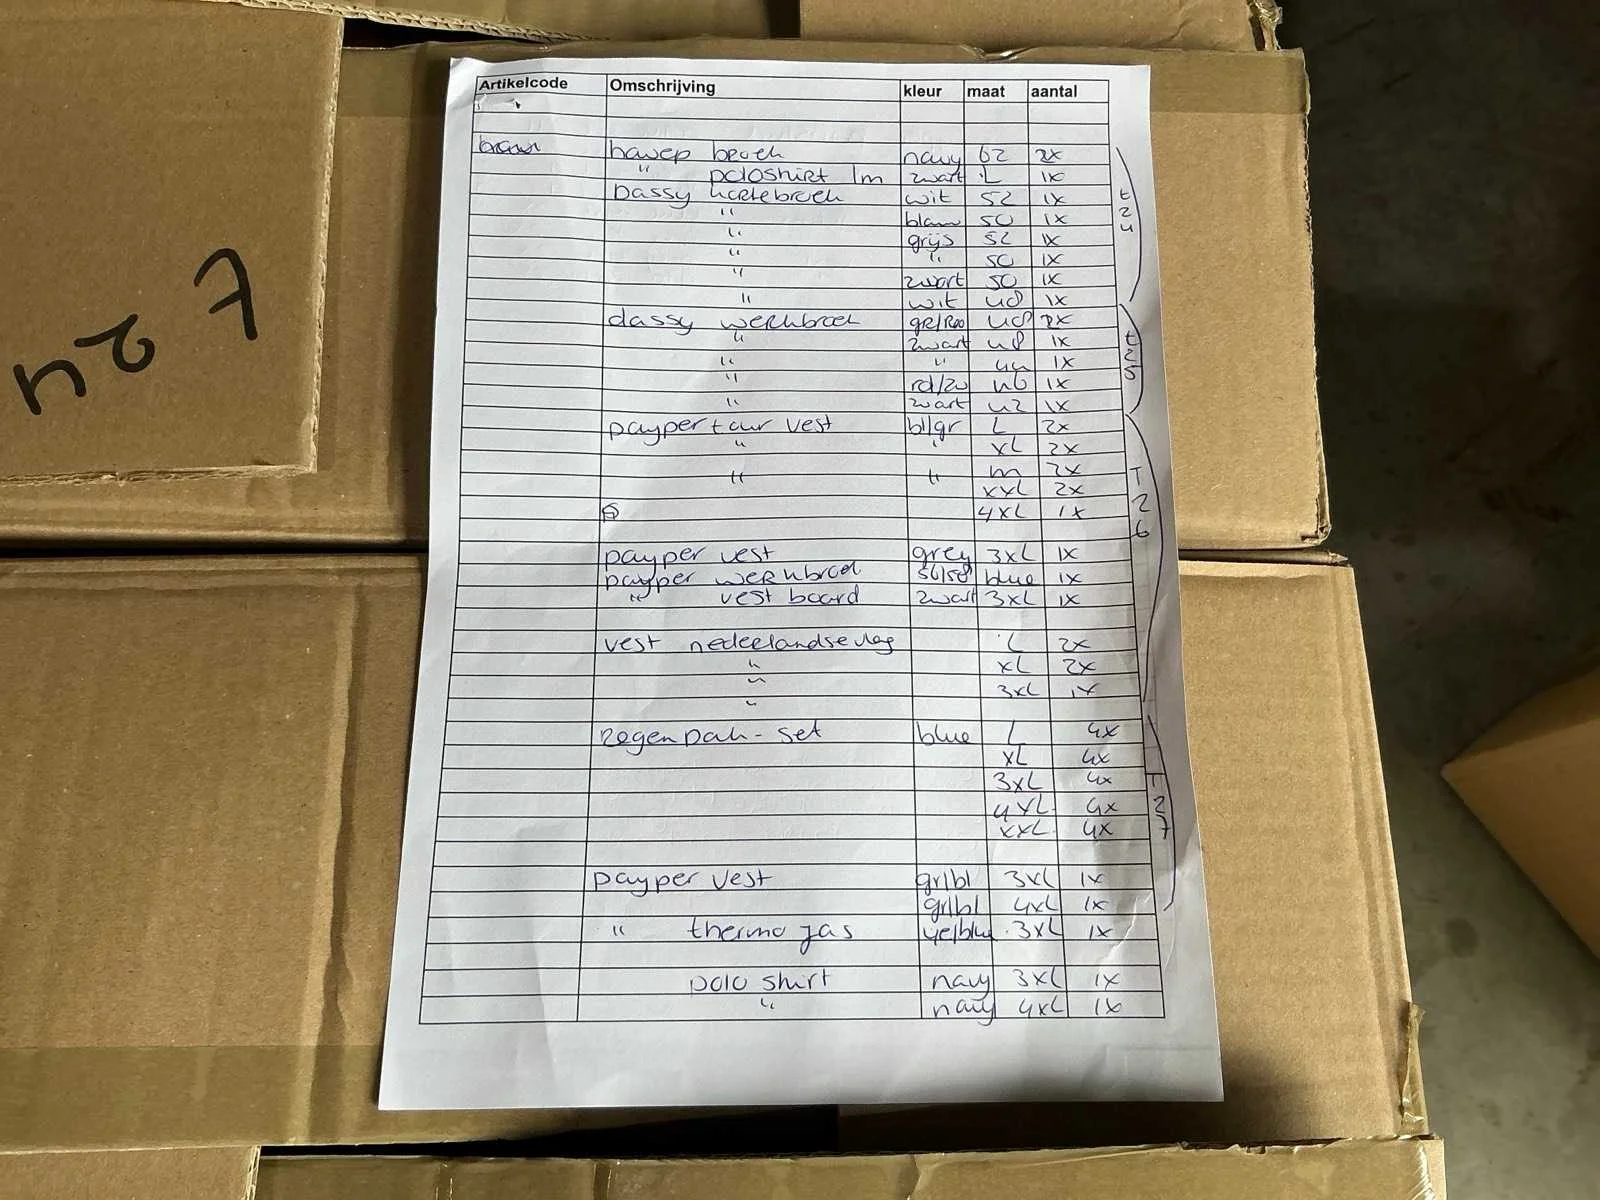 Artikelcode Omschrijving kleur maat aantal
havep broek navy 62 2x
" poloshirt lm zwart L 1x
Dassy kortebroek wit 52 1x
" blauw 50 1x
" grijs 52 1x
" " 50 1x
" zwart 50 1x
" wit 48 1x
t24
dassy werkbroek gR/Roo 48 2x
" zwart 48 1x
" " 44 1x
" rd/zw 46 1x
" zwart 42 1x
t25
payper + aur vest bl/gr L 2x
" " XL 2x
" " m 2x
XXL 2x
4XL 1x
payper vest grey 3XL 1x
payper werkbroek 56/58 blue 1x
" vest board zwart 3XL 1x
vest nederlandse vlag L 2x
" XL 2x
" 3XL 1x
"
T26
regenpak-set blue L 4x
XL 4x
3XL 4x
4XL 4x
XXL 4x
payper vest gr/bl 3XL 1x
gr/bl 4XL 1x
T27
" thermo jas ye/blue 3XL 1x
polo shirt navy 3XL 1x
" navy 4XL 1x
t24